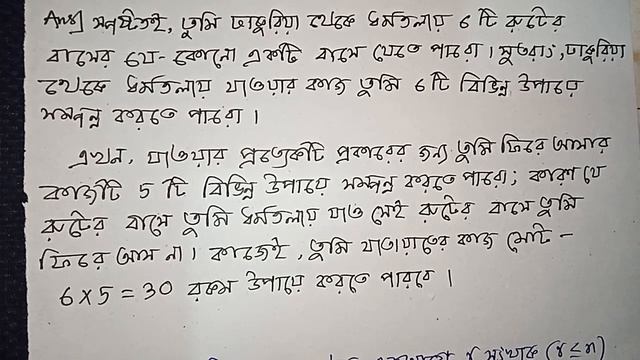 Ans] স্পষ্টতই, তুমি ঢাকুরিয়া থেকে ধর্মতলায় 6 টি রুটের
বাসের যে-কোনো একটি বাসে যেতে পারো। সুতরাং, ঢাকুরিয়া
থেকে ধর্মতলায় যাওয়ার কাজ তুমি 6 টি বিভিন্ন উপায়ে
সম্পন্ন করতে পারো।
এখন, যাওয়ার প্রত্যেকটি প্রকারের জন্য তুমি ফিরে আসার
কাজটি 5 টি বিভিন্ন উপায়ে সম্পন্ন করতে পারো; কারণ যে
রুটের বাসে তুমি ধর্মতলায় যাও সেই রুটের বাসে তুমি
ফিরে আস না। কাজেই, তুমি যাতায়াতের কাজ মোট -
6 × 5 = 30 রকম উপায়ে করতে পারবে।
সংখ্যক (r ≤ n)